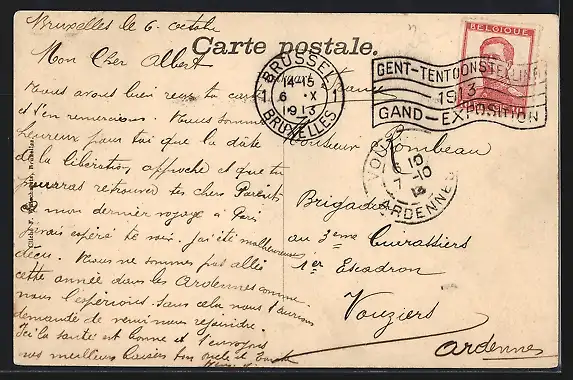 Bruxelles le 6. octobre
Mon Cher Albert
Carte postale.
Nous avons bien reçu ta carte
et t'en remercions. Nous sommes
heureux pour toi que la date
de la libération approche et que tu
pourras retrouver tes chers Parents
mon dernier voyage à Paris
j'avais espéré te voir. J'ai été malheureusement
déçu. Nous ne sommes pas allés
cette année dans les Ardennes comme
nous l'espérions. Sans cela nous t'aurions
demandé de venir nous rejoindre.
Ici la santé est bonne et t'envoyons
nos meilleurs baisers ton oncle et tante
BRUSSEL
14-15
6 X
1913
BRUXELLES
GENT-TENTOONSTELLING
1913
GAND-EXPOSITION
BELGIQUE
Monsieur Rombeau
Brigadier
au 3ème Cuirassiers
1er Escadron
Vouziers
Ardennes
10
7 -10
13
ARDENNES